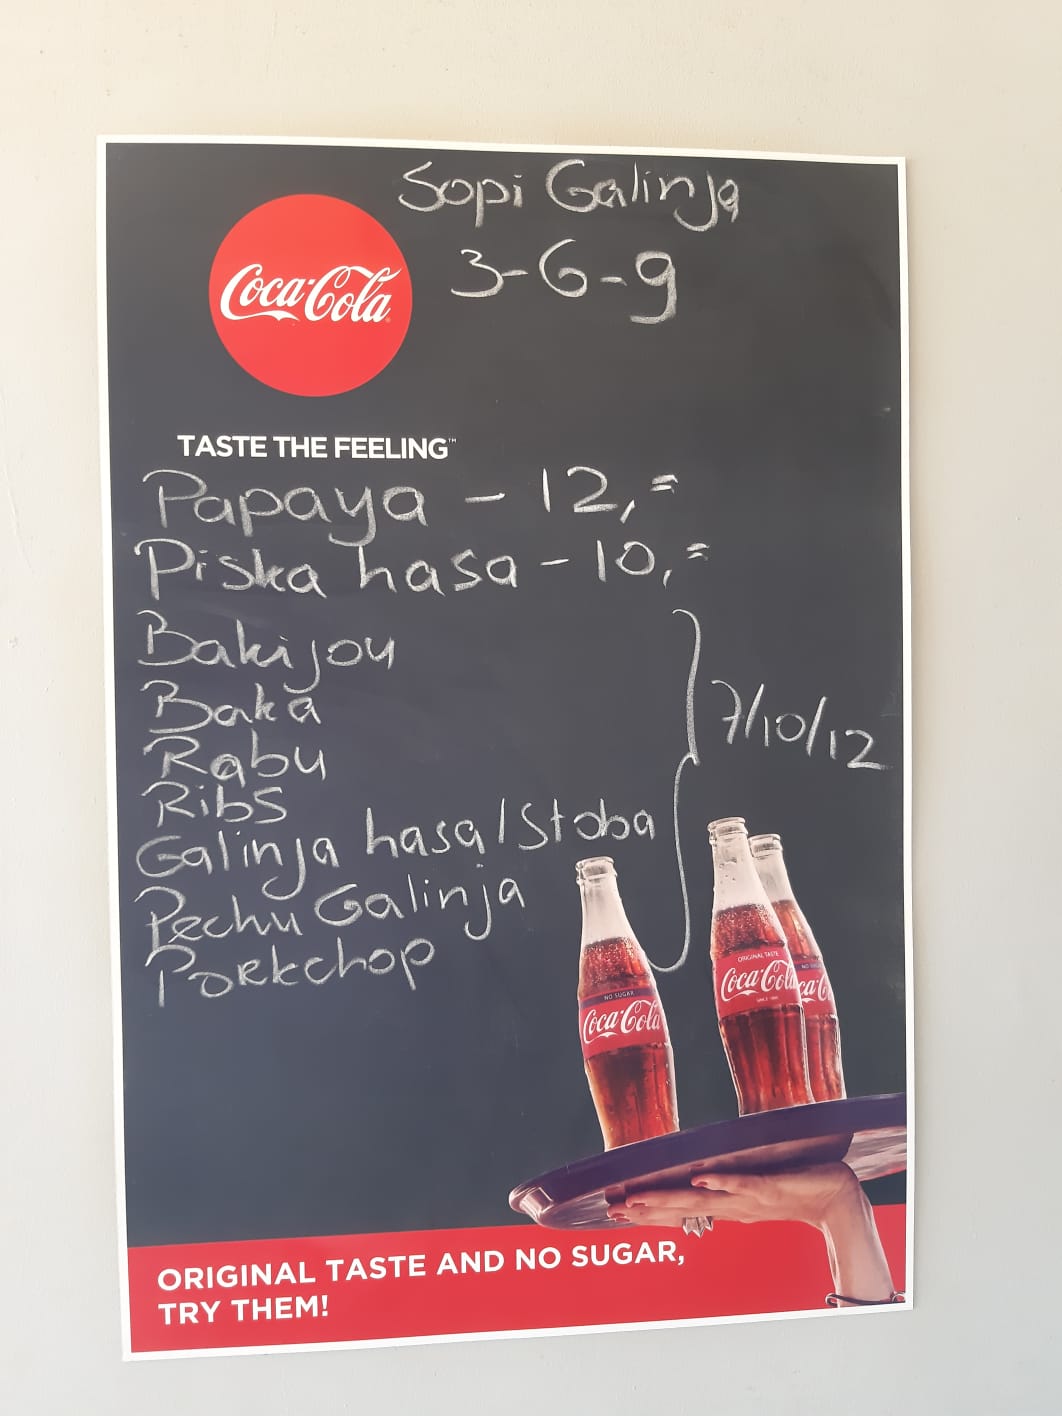 Sopi Galinja
3-6-9
Coca-Cola
TASTE THE FEELING™
Papaya - 12,=
Piska hasa - 10,=
Bakijou
Baka
Rabu
Ribs
Galinja hasa/Stoba
Pechu Galinja
Porkchop
7/10/12
NO SUGAR
Coca-Cola
ORIGINAL TASTE
Coca-Cola
NO SUGAR
Coca-Cola
ORIGINAL TASTE AND NO SUGAR,
TRY THEM!